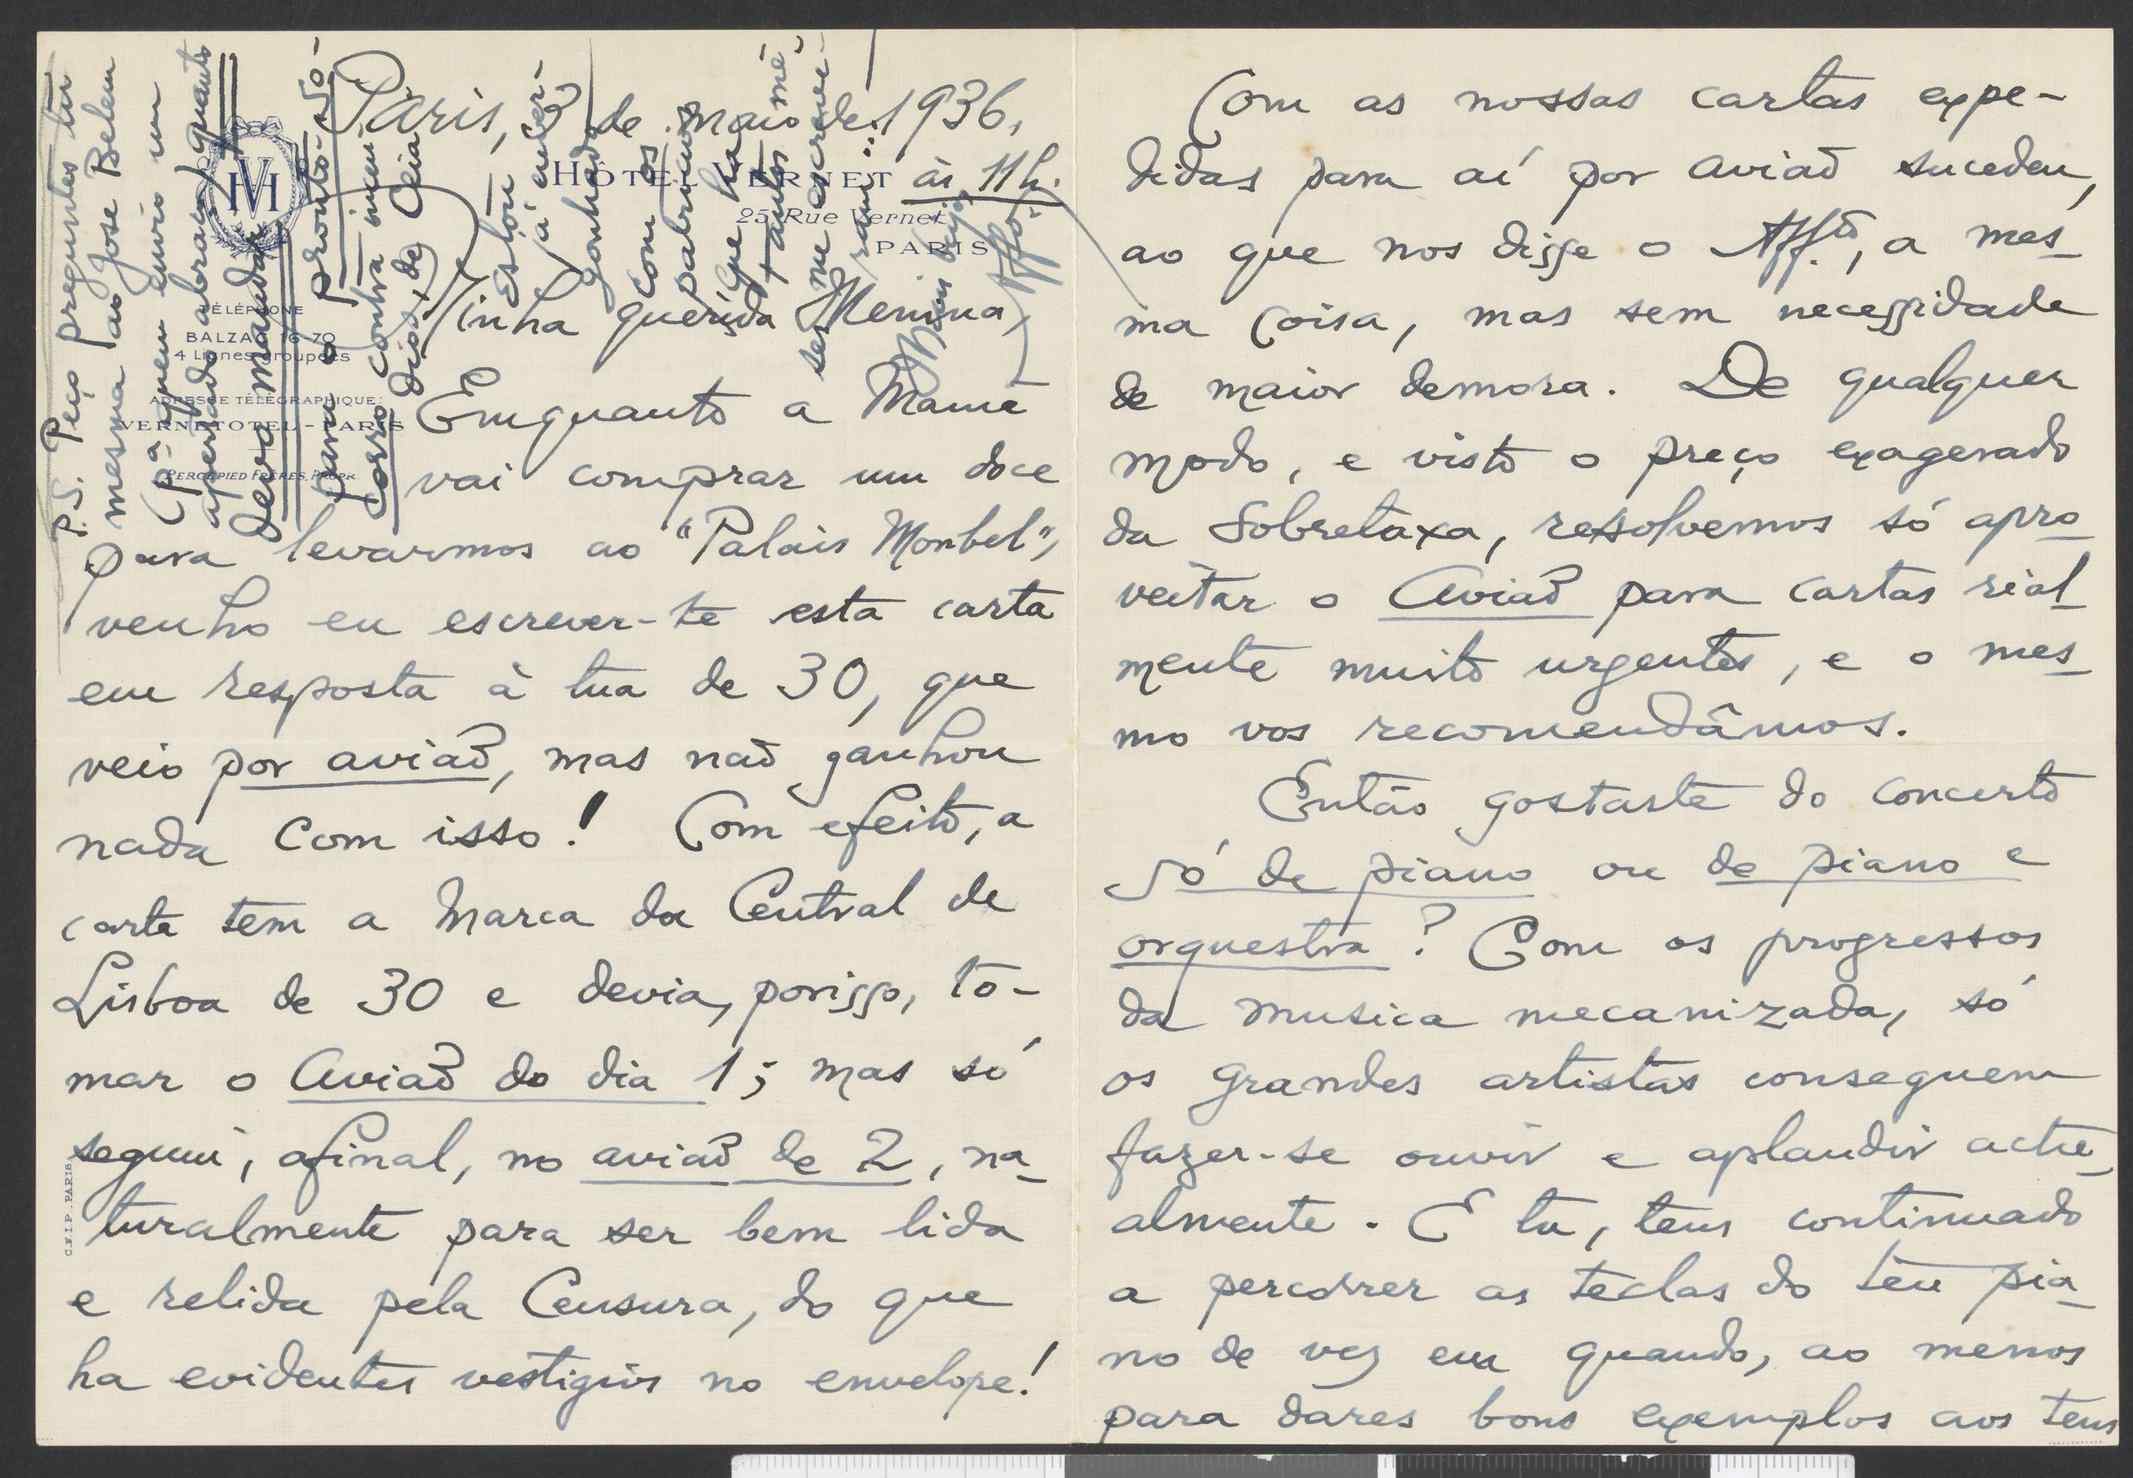 Paris, 3 de maio de 1936,
às 11 h.
HÔTEL VERNET
25, Rue Vernet
PARIS
TÉLÉPHONE
BALZAC 16-70
4 Lignes Groupées
ADRESSE TÉLÉGRAPHIQUE:
VERNETOTEL-PARIS
PERCEPIED FRÈRES, PROPR.
Minha querida Menina,
Emquanto a Mamã
vai comprar um doce
para levarmos ao "Palais Monbel",
venho eu escrever-te esta carta
em resposta à tua de 30, que
veio por avião, mas não ganhou
nada com isso! Com efeito, a
carta tem a marca da Central de
Lisboa de 30 e devia, porisso, to-
mar o avião do dia 1; mas só
seguiu, afinal, no avião de 2, na-
turalmente para ser bem lida
e relida pela Censura, do que
ha evidentes vestigios no envelope!
C.N.I.P. PARIS
Com as nossas cartas expe-
didas para aí por avião sucedeu,
ao que nos disse o Aff.º, a mes-
ma coisa, mas sem necessidade
de maior demora. De qualquer
modo, e visto o preço exagerado
da Sobretaxa, resolvemos só apro-
veitar o avião para cartas rial-
mente muito urgentes, e o mes-
mo vos recomendâmos.
Então gostaste do concerto
só de piano ou de piano e
orquestra? Com os progressos
da musica mecanizada, só
os grandes artistas conseguem
fazer-se ouvir e aplaudir actu-
almente. E tu, tens continuado
a percorrer as teclas do teu pia-
no de vez em quando, ao menos
para dares bons exemplos aos teus
P.S. Peço preguntes tu
mesma ao José Belem
(pª quem envio um
apertado abraço) quanto
devo mandar
para o pronto-só-
corro contra incen-
dios, de Ceia
Estou
com os
que ha
tantos mê-
ses me escreve-
ram...
Affº